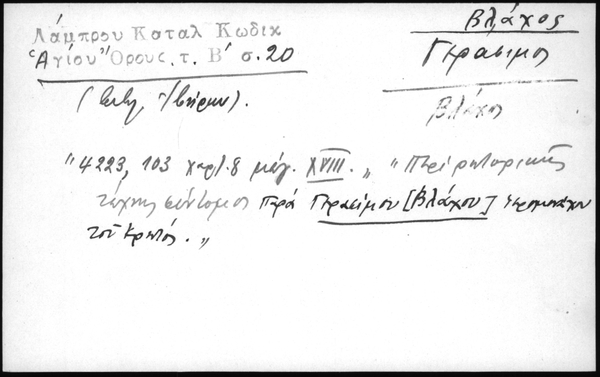 Λάμπρου Καταλ Κωδικ
Ἁγίου Ὄρους, τ. Β' σ. 20
Βλάχος
Γεράσιμος
Βλάχος
(Ἰβήρων).
"4223, 103 χαρτ. 8 μεγ. XVIII. „ "Περί ρητορικῆς
τέχνης σύντομος παρά Γερασίμου [Βλάχου] ἱερομονάχου
τοῦ Κρητός. „